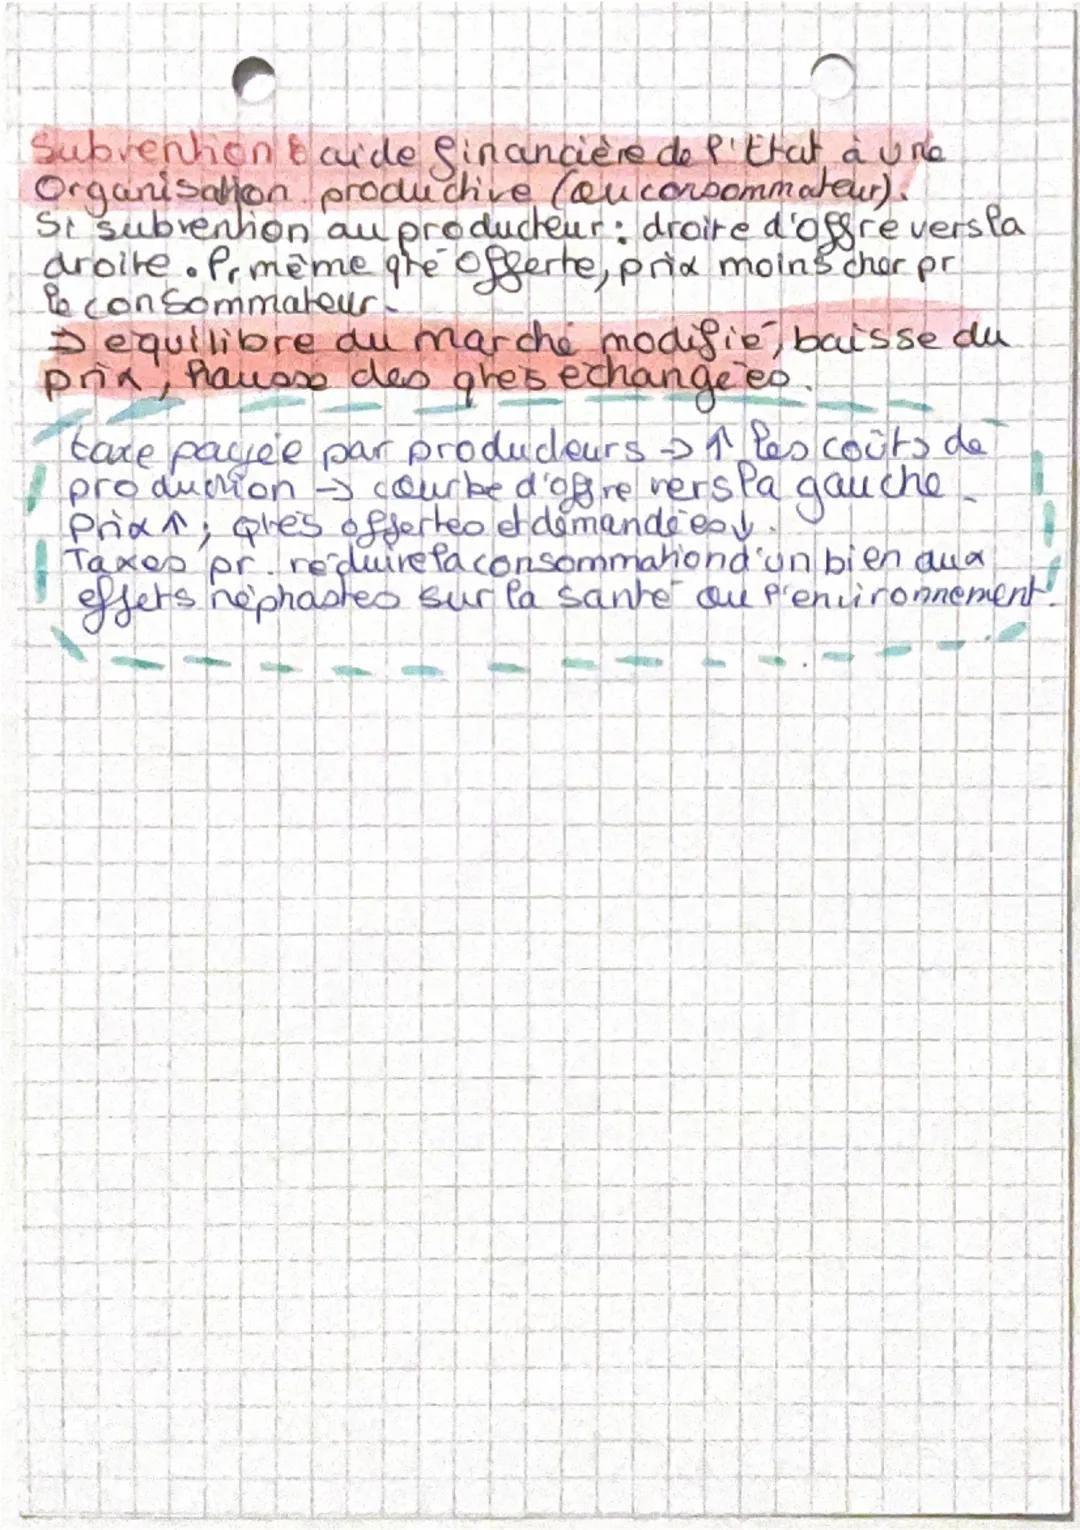 Subvention : aide financière de l'Etat à une
Organisation productive (ou consommateur).
Si subvention au producteur : droite d'offre vers la
droite. Pr même qté offerte, prix moins cher pr
le consommateur.
⇒ equilibre du marché modifié, baisse du
prix, hausse des qtés échangées.
taxe payée par producteurs → ↑ les coûts de
production → courbe d'offre vers la gauche.
Prix ↑ ; qtés offertes et demandées ↓.
Taxes pr. réduire la consommation d'un bien aux
effets néphastes sur la santé ou l'environnement.